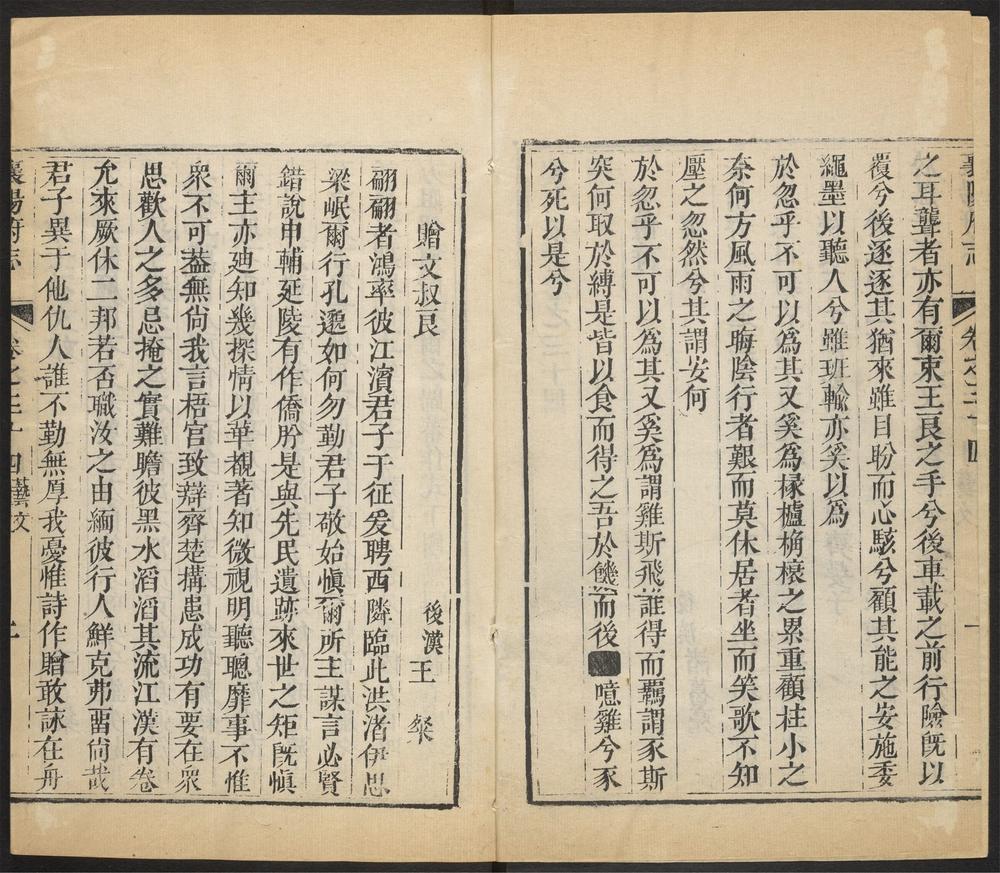 襄陽府志
卷之三十四
一
之耳聾者亦有爾東王良之手兮後車載之前行險既以
覆兮後逐逐其猶來雖目盼而心駭兮顧其能之安施委
繩墨以聽人兮雖班輸亦奚以為
於忽乎不可以為其又奚為椽櫨桷榱之累重顧拄小之
奈何方風雨之晦陰行者艱而莫休居者坐而笑歌不知
壓之忽然兮其謂安何
於忽乎不可以為其又奚為謂雞斯飛誰得而羈謂豕斯
突何取於縛是皆以食而得之吾於饑而後噫雞兮豕
兮死以是兮
贈文叔良
後漢王粲
翩翩者鴻率彼江濱君子于征爰聘西隣臨此洪渚伊思
梁岷爾行孔邈如何勿勤君子敬始慎爾所主謀言必賢
錯說申輔延陵有作僑肸是與先民遺跡來世之矩既慎
爾主亦廸知幾探情以華覩著知微視明聽聰靡事不惟
衆不可葢無尚我言梧宮致辯齊楚搆患成功有要在衆
思歡人之多忌掩之實難瞻彼黑水滔滔其流江漢有卷
允來厥休二邦若否職汝之由緬彼行人鮮克弗留尚哉
君子異于他仇人誰不勤無厚我憂惟詩作贈敢詠在舟
襄陽府志
卷之三十四
藝文
二